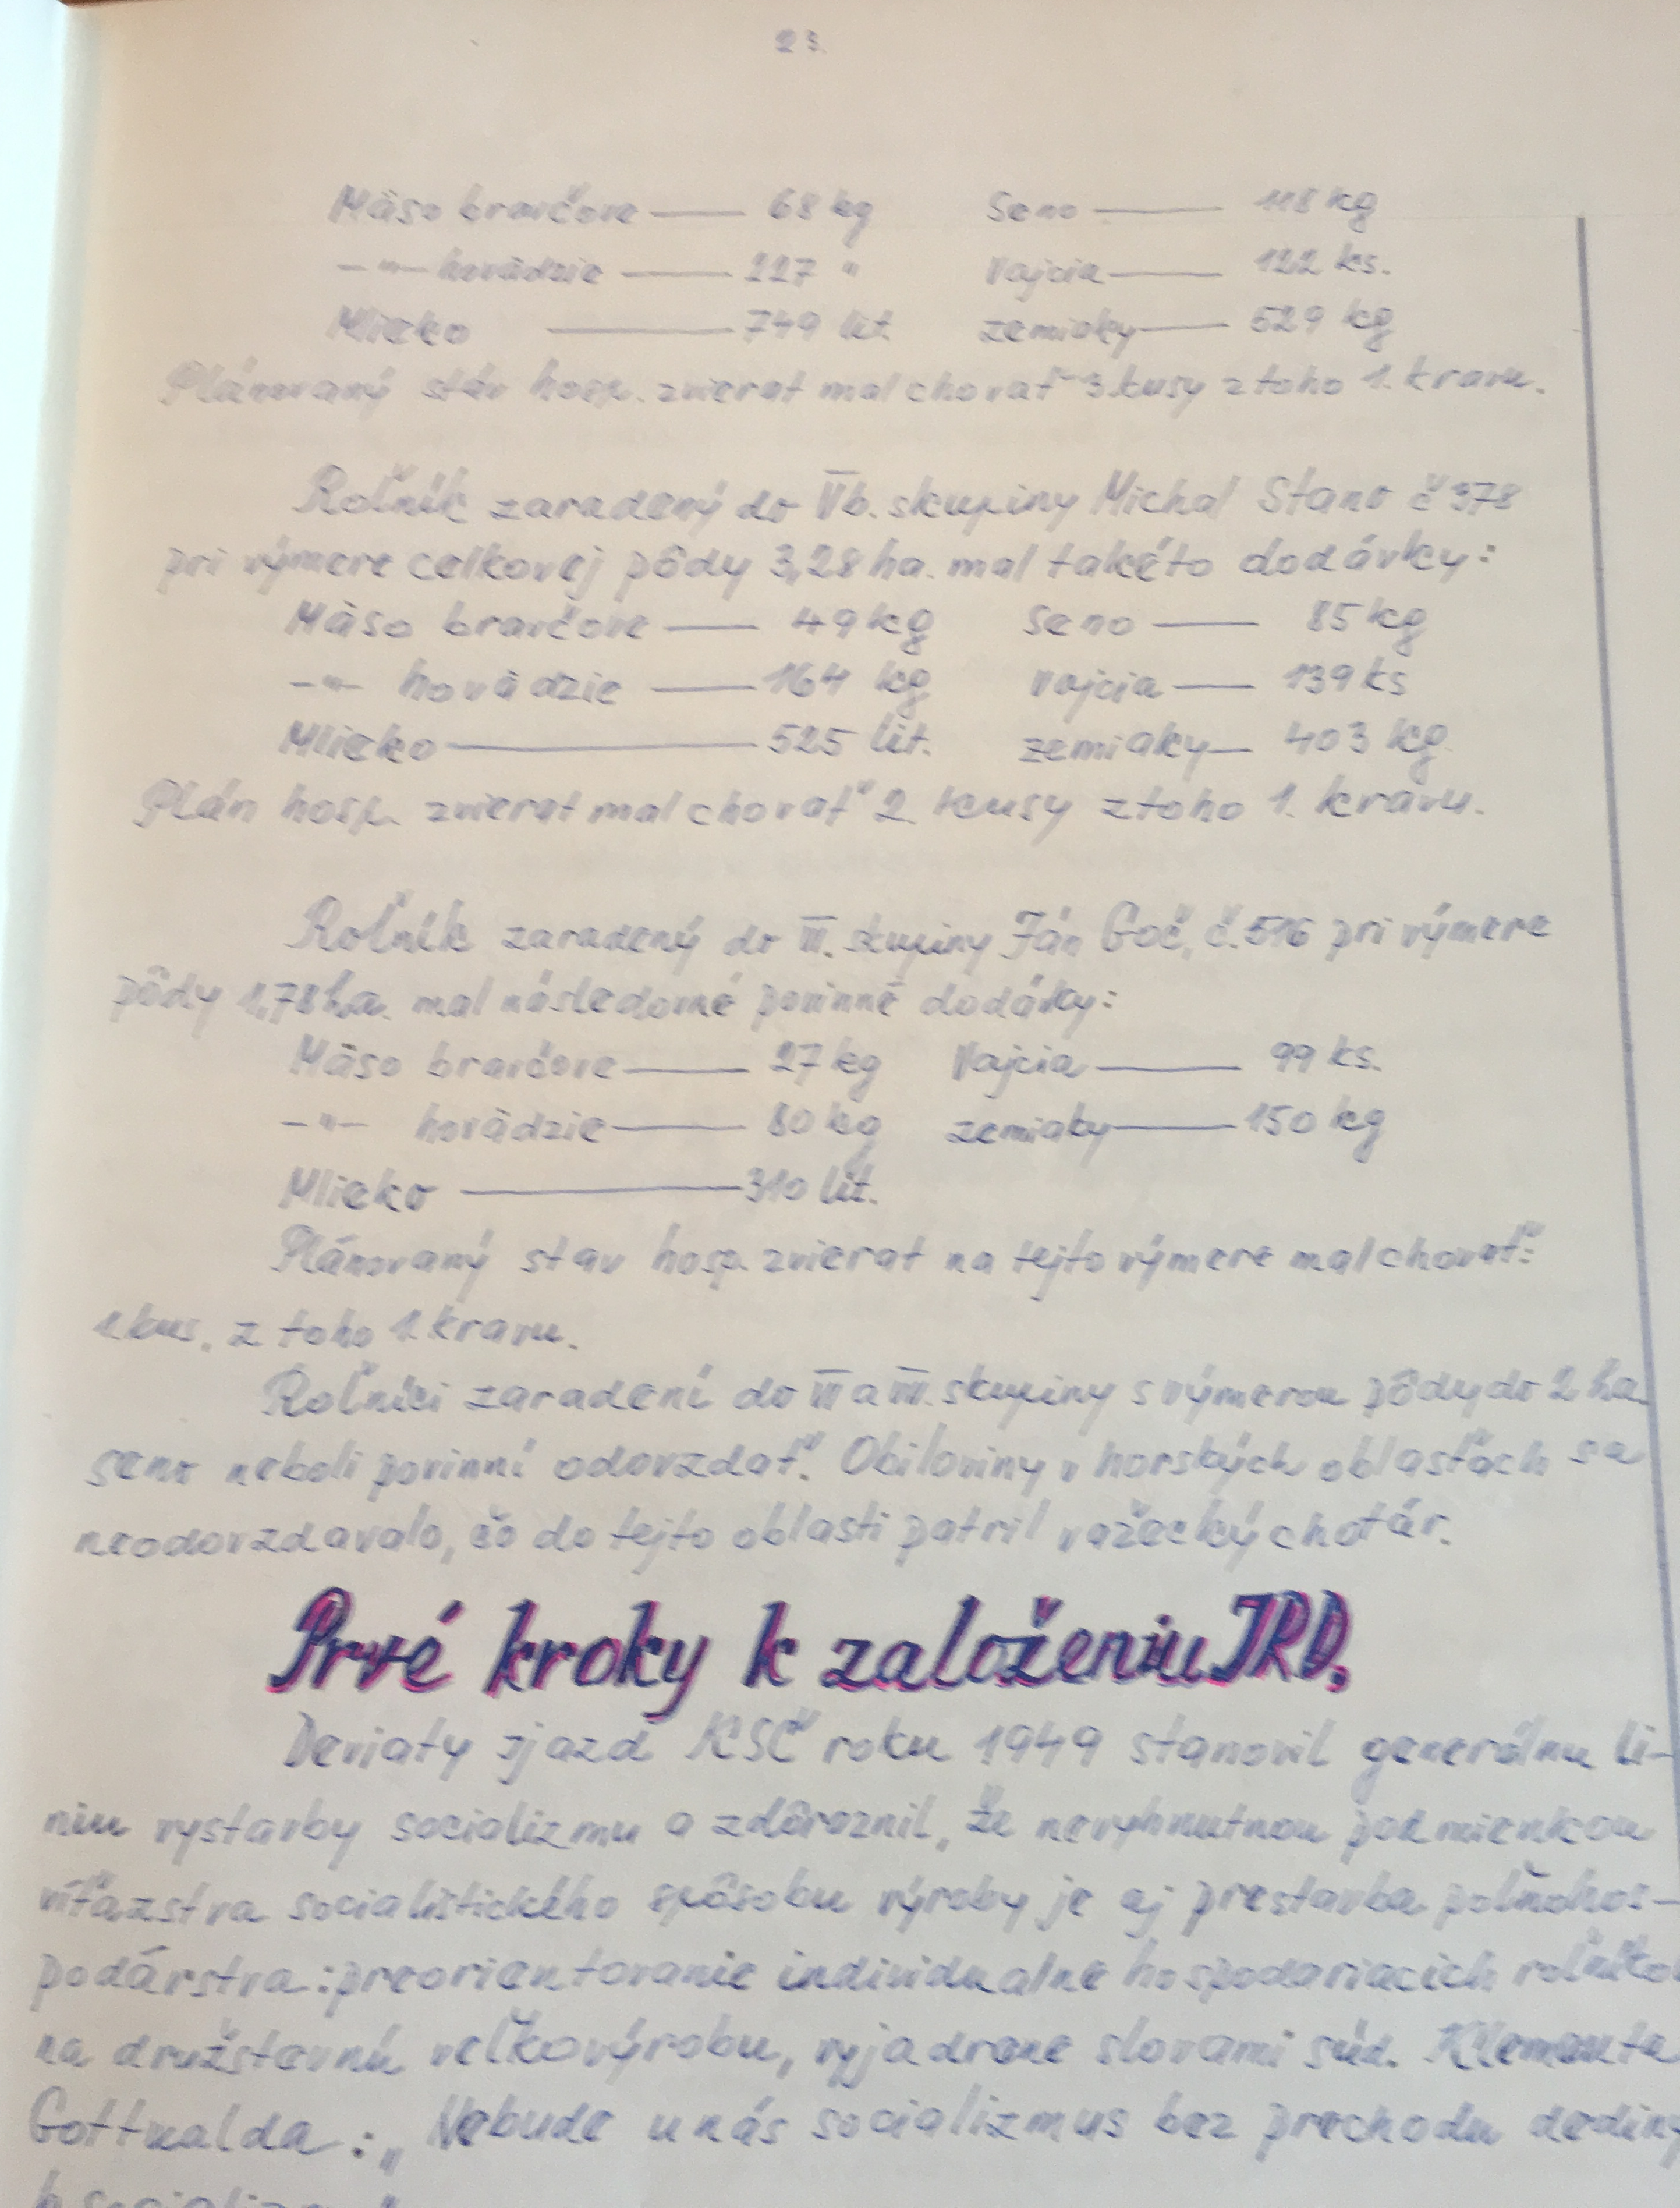 23.
Mäso bravčove — 68 kg Seno — 118 kg
—"— hovädzie — 227 " Vajcia — 122 ks.
Mlieko — 749 lit. zemiaky — 529 kg
Plánovaný stav hosp. zvierat mal chovať 3 kusy z toho 1. kravu.
Roľník zaradený do Vb. skupiny Michal Stano č 378
pri výmere celkovej pôdy 3,28 ha. mal takéto dodávky:
Mäso bravčove — 49 kg Seno — 85 kg
—"— hovädzie — 164 kg Vajcia — 139 ks
Mlieko — 525 lit. zemiaky — 403 kg
Plán hosp. zvierat mal chovať 2. kusy z toho 1. kravu.
Roľník zaradený do skupiny Ján Goč, č. 516 pri výmere
pôdy 1,78 ha. mal následovné povinné dodávky:
Mäso bravčove — 27 kg Vajcia — 99 ks.
—"— hovädzie — 80 kg zemiaky — 150 kg
Mlieko — 310 lit.
Plánovaný stav hosp. zvierat na tejto výmere mal chovať:
1. kus. z toho 1. kravu.
Roľníci zaradení do VI a VII. skupiny s výmerou pôdy do 2 ha.
seno neboli povinní odovzdať. Obiloviny v horských oblasťach sa
neodovzdavalo, čo do tejto oblasti patril važecký chotár.
Prvé kroky k založeniu JRD.
Deviaty sjazd KSČ roku 1949 stanovil generálnu li-
niu vystavby socializmu a zdôraznil, že nevyhnutnou podmienkou
víťazstva socialistického spôsobu výroby je aj prestavba poľnohos-
podárstva: preorientovanie individualne hospodariacich
na družstevnú veľkovýrobu, vyjadrene slovami súd. Klementa
Gottwalda: „Nebude u nás socializmus bez prechodu dediny